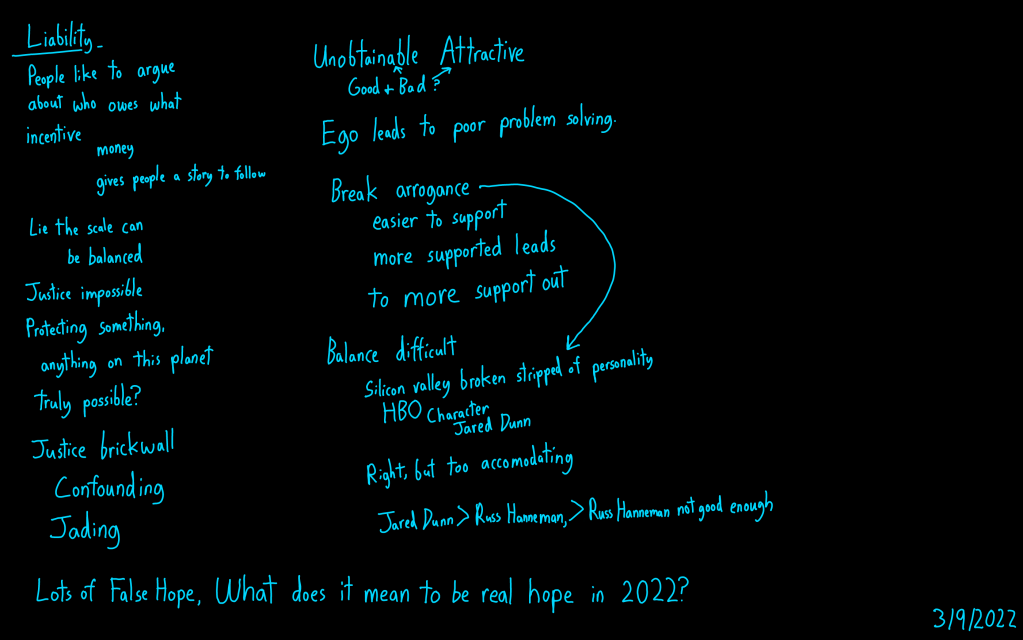 Liability -
People like to argue
about who owes what
incentive
money
gives people a story to follow
Lie the scale can
be balanced
Justice impossible
Protecting something,
anything on this planet
truly possible?
Justice brickwall
Confounding
Jading
Unobtainable Attractive
Good + Bad ?
Ego leads to poor problem solving.
Break arrogance
easier to support
more supported leads
to more support out
Balance difficult
Silicon valley broken stripped of personality
HBO Character
Jared Dunn
Right, but too accomodating
Jared Dunn > Russ Hanneman, > Russ Hanneman not good enough
Lots of False Hope, What does it mean to be real hope in 2022?
3/9/2022